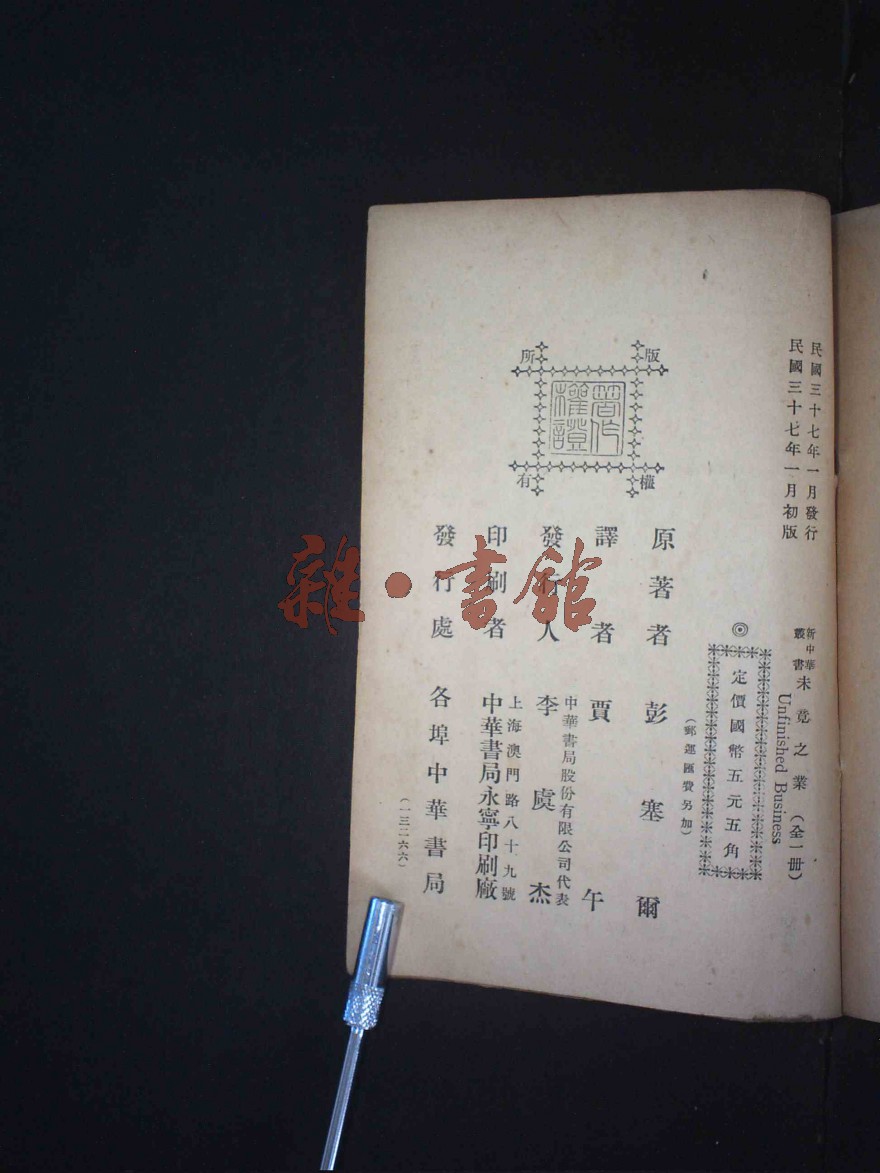 民國三十七年一月發行
民國三十七年一月初版
新中華叢書
未竟之業（全一冊）
Unfinished Business
◎定價國幣五元五角
（郵運匯費另加）
版權所有
著作權證
原著者 彭塞爾
譯者 賈午
發行人 李虞杰
中華書局股份有限公司代表
印刷者 中華書局永寧印刷廠
上海澳門路八十九號
發行處 各埠中華書局
（一三一六六）
雜·書館